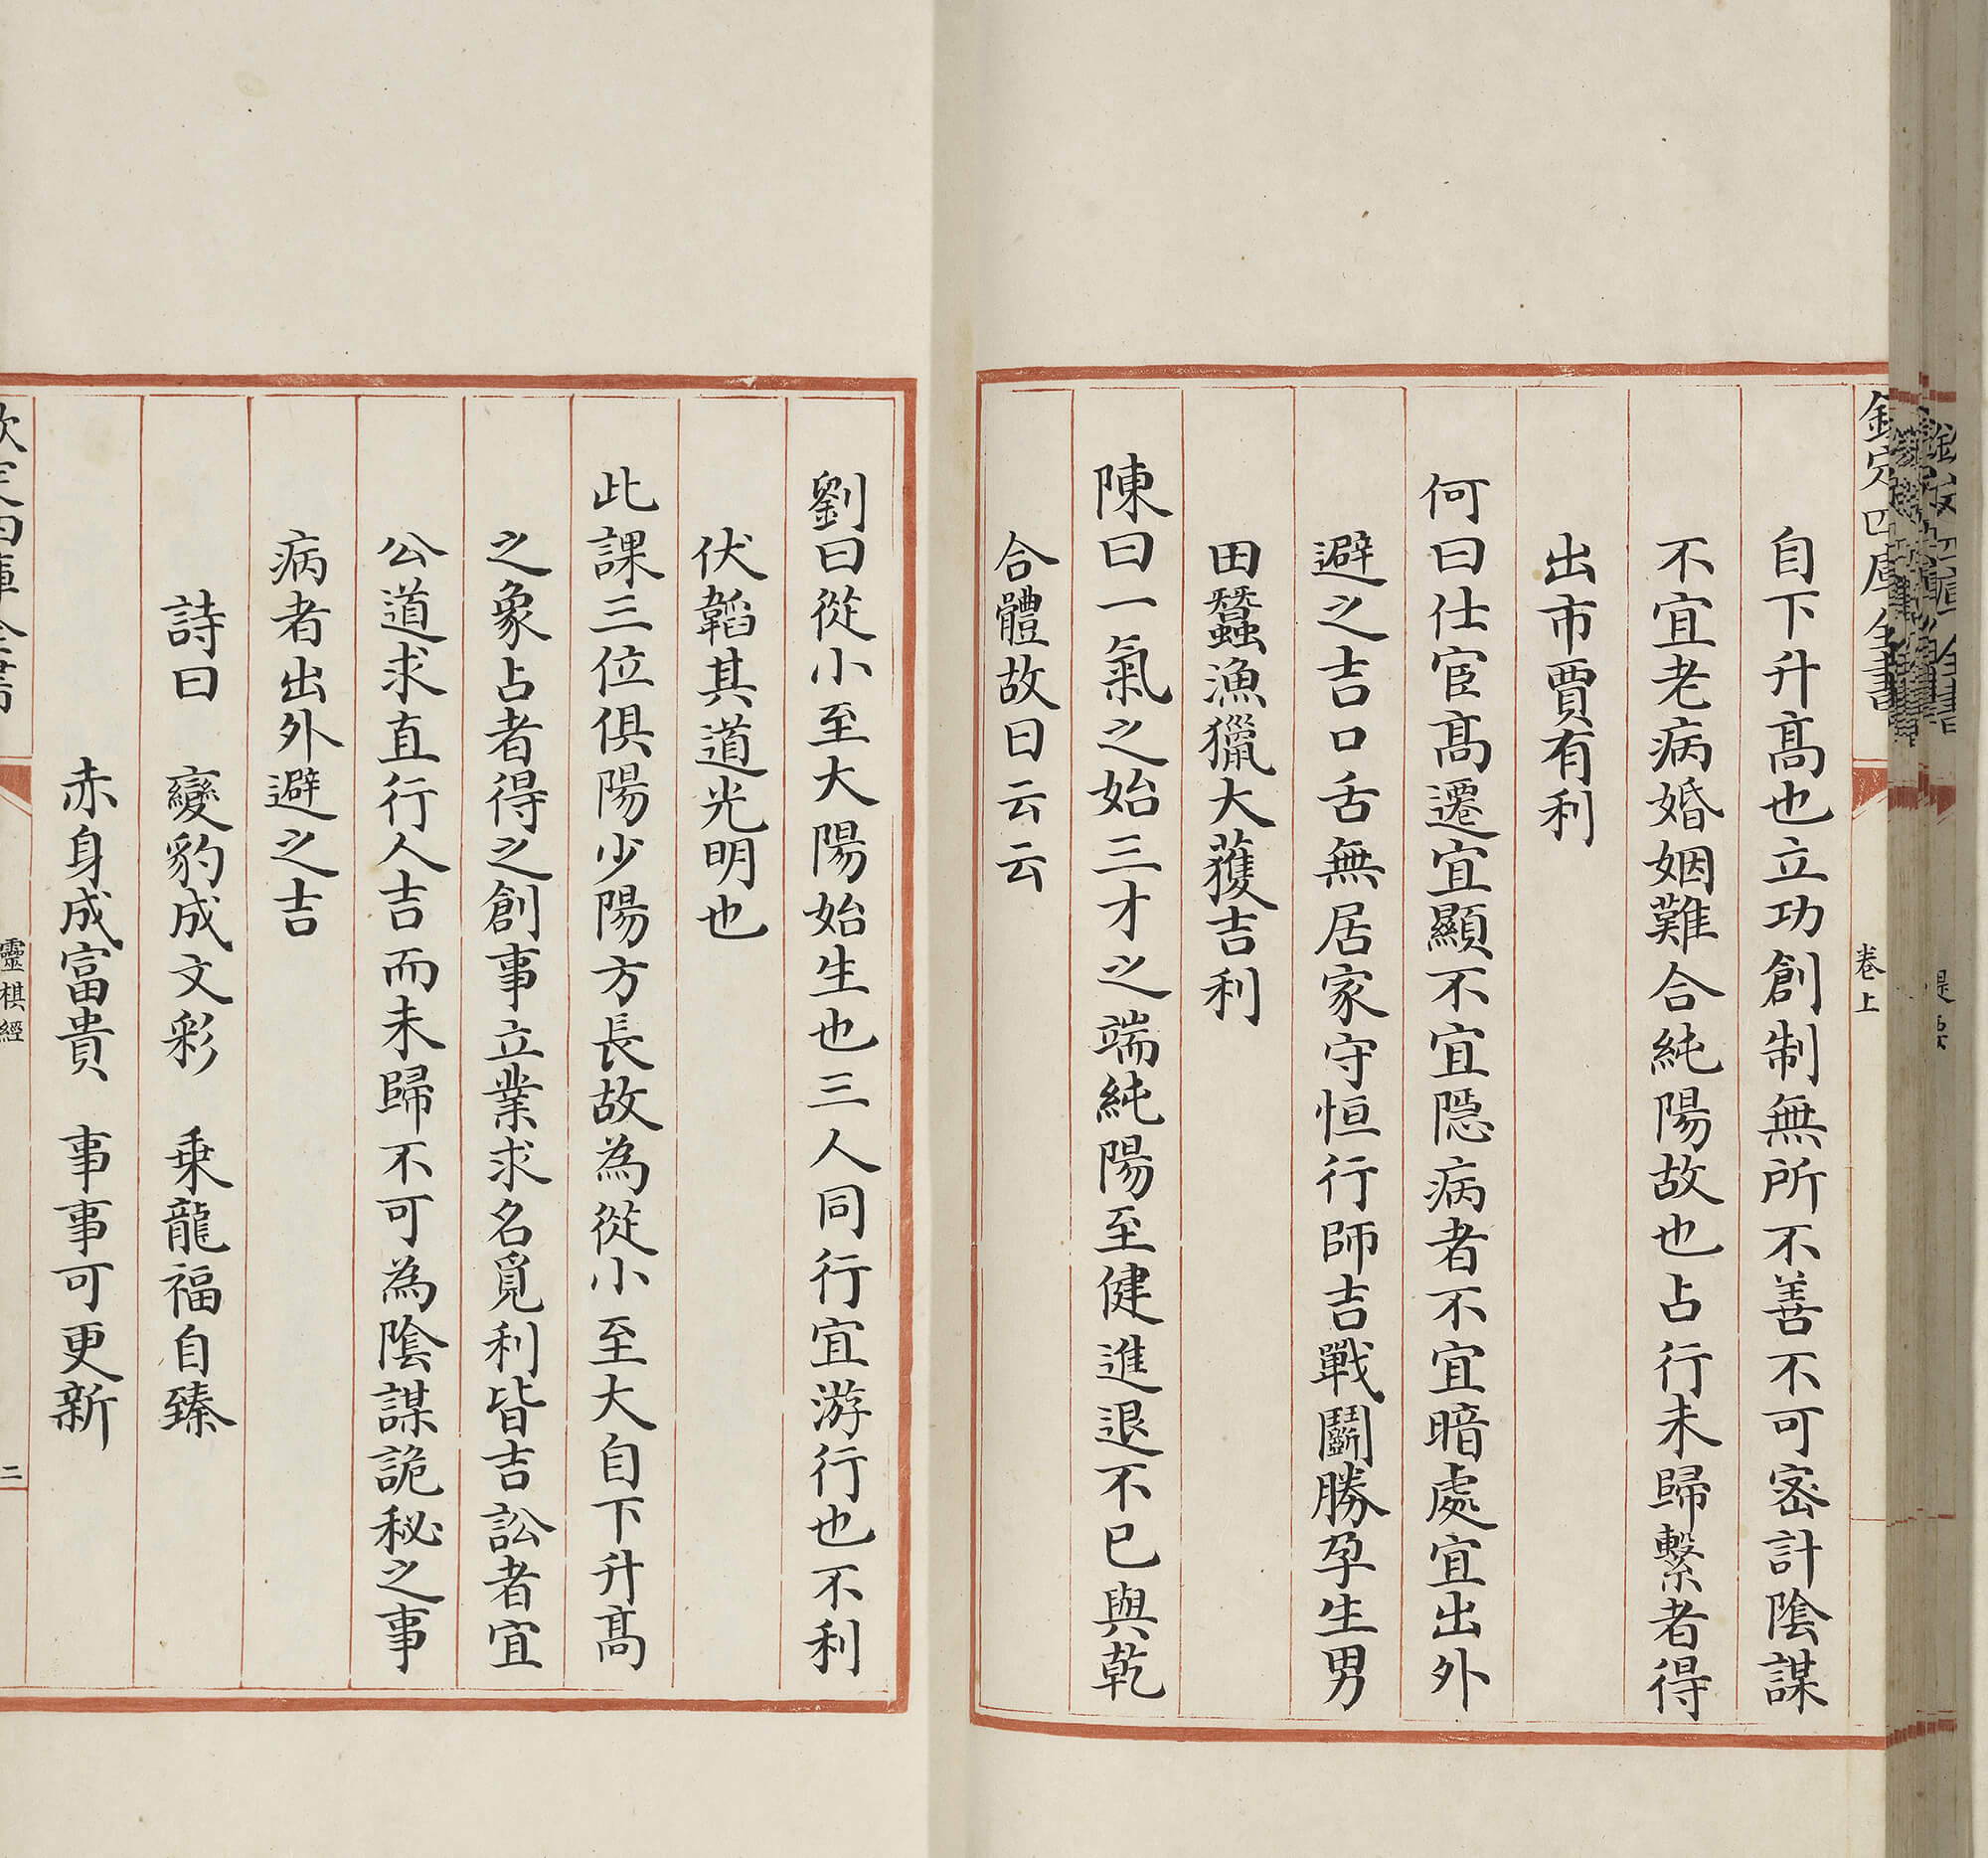 欽定四庫全書
卷上
自下升髙也立功創制無所不善不可密計隂謀
不宜老病婚姻難合純陽故也占行未歸繫者得
出市賈有利
何曰仕宦髙遷宜顯不宜隠病者不宜暗處宜出外
避之吉口舌無居家守恒行師吉戰鬭勝孕生男
田蠶漁獵大獲吉利
陳曰一氣之始三才之端純陽至健進退不已與乾
合體故曰云云
劉曰從小至大陽始生也三人同行宜游行也不利
伏韜其道光明也
此課三位俱陽少陽方長故為從小至大自下升髙
之象占者得之創事立業求名覓利皆吉訟者宜
公道求直行人吉而未歸不可為隂謀詭秘之事
病者出外避之吉
詩曰　變豹成文彩　乗龍福自臻
赤身成富貴　事事可更新
欽定四庫全書
靈棋經
二